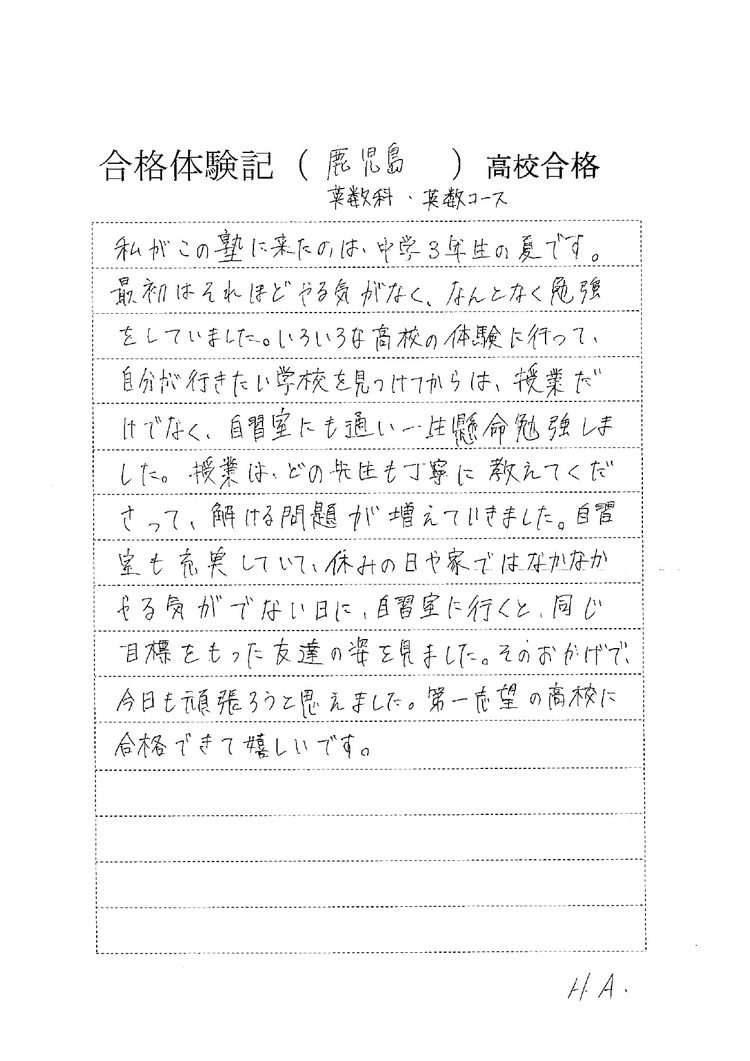 合格体験記（鹿児島　）高校合格
英数科・英数コース
私がこの塾に来たのは、中学3年生の夏です。
最初はそれほどやる気がなく、なんとなく勉強
をしていました。いろいろな高校の体験に行って、
自分が行きたい学校を見つけてからは、授業だ
けでなく、自習室にも通い一生懸命勉強しま
した。授業は、どの先生も丁寧に教えてくだ
さって、解ける問題が増えていきました。自習
室も充実していて、休みの日や家ではなかなか
やる気がでない日に、自習室に行くと、同じ
目標をもった友達の姿を見ました。そのおかげで、
今日も頑張ろうと思えました。第一志望の高校に
合格できて嬉しいです。
H.A.